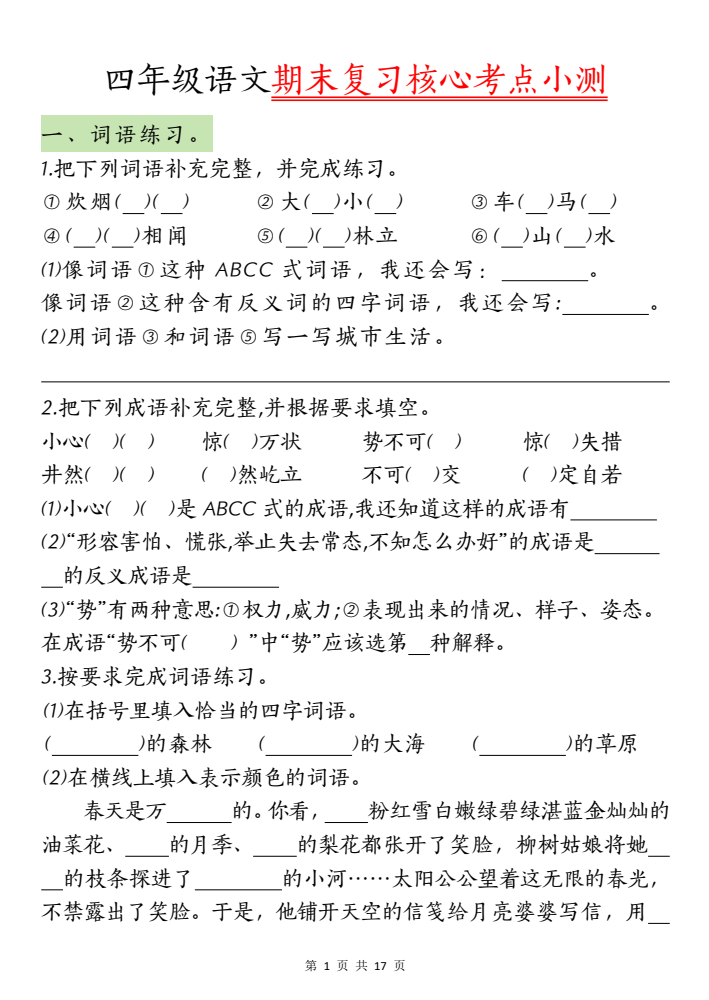 四年级语文期末复习核心考点小测
一、词语练习。
1.把下列词语补充完整，并完成练习。
①炊烟(__)(__) ②大(__)小(__) ③车(__)马(__)
④(__)(__)相闻 ⑤(__)(__)林立 ⑥(__)山(__)水
(1)像词语①这种 ABCC 式词语，我还会写：________。
像词语②这种含有反义词的四字词语，我还会写:________。
(2)用词语③和词语⑤写一写城市生活。
2.把下列成语补充完整,并根据要求填空。
小心( )( ) 惊( )万状 势不可( ) 惊( )失措
井然( )( ) ( )然屹立 不可( )交 ( )定自若
(1)小心( )( )是 ABCC 式的成语,我还知道这样的成语有________
(2)“形容害怕、慌张,举止失去常态,不知怎么办好”的成语是______
__的反义成语是________
(3)“势”有两种意思:①权力,威力;②表现出来的情况、样子、姿态。
在成语“势不可( ) ”中“势”应该选第__种解释。
3.按要求完成词语练习。
(1)在括号里填入恰当的四字词语。
(________)的森林 (________)的大海 (________)的草原
(2)在横线上填入表示颜色的词语。
春天是万______的。你看，____粉红雪白嫩绿碧绿湛蓝金灿灿的
油菜花、____的月季、____的梨花都张开了笑脸，柳树姑娘将她__
__的枝条探进了________的小河……太阳公公望着这无限的春光，
不禁露出了笑脸。于是，他铺开天空的信笺给月亮婆婆写信，用__
第 1 页 共 17 页